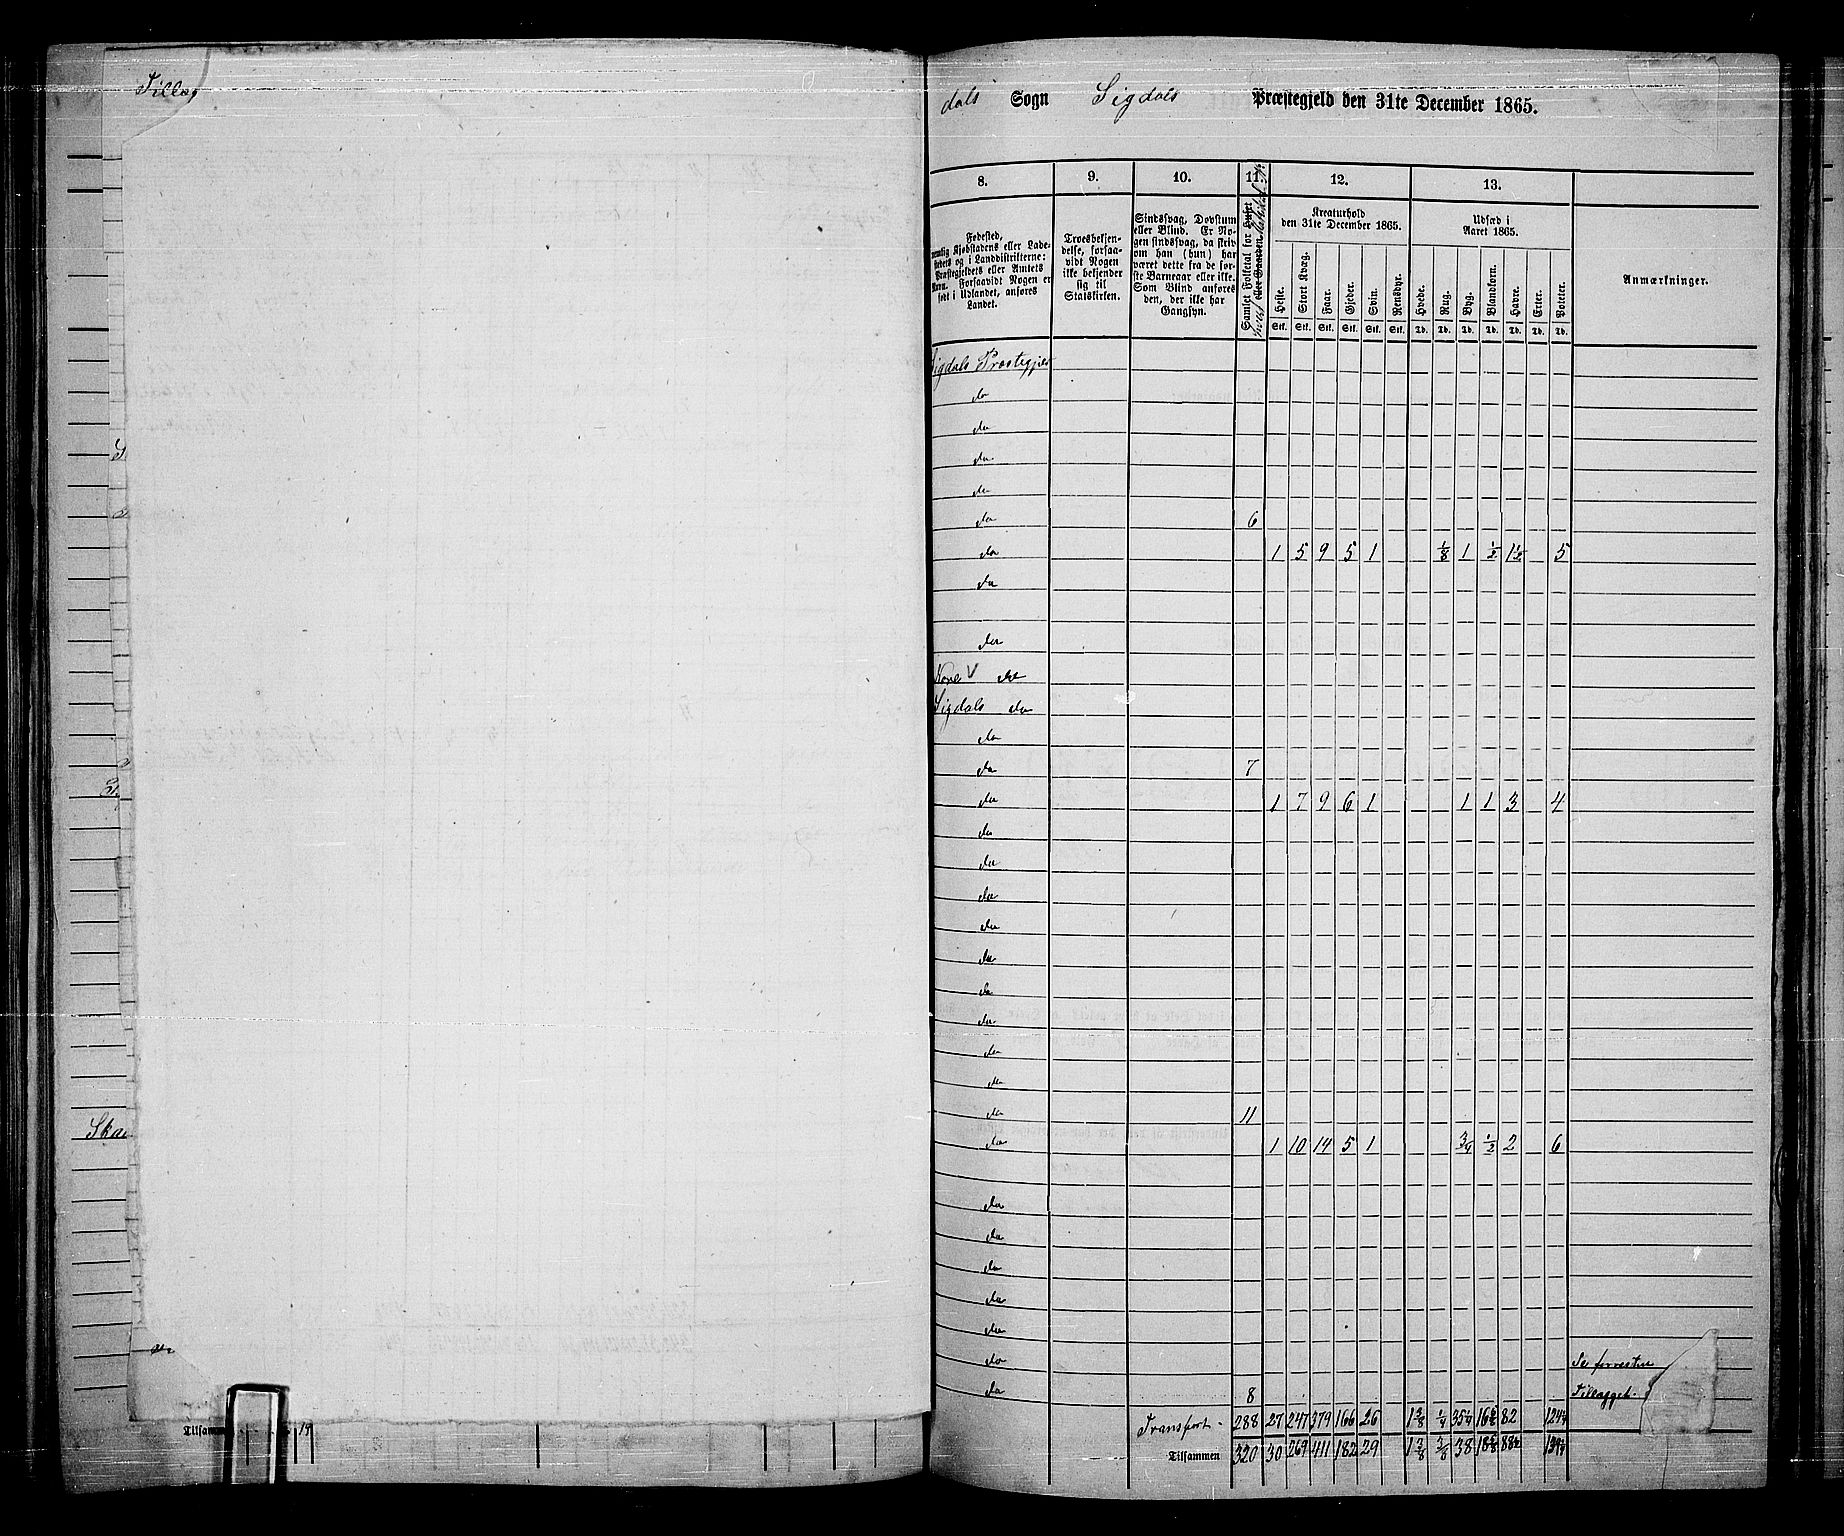 Tillæg
dals Sogn Sigdals Præstegjeld den 31te December 1865.
8. 9. 10. 11. 12. 13.
Fødested,
nemlig Kjøbstadens eller Lade-
stedets og i Landdistrikterne:
Præstegjeldets eller Amtets
Navn. Forsaavidt Nogen er
født i Udlandet, anføres
Landet.
Troesbekjen-
delse, forsaa-
vidt Nogen
ikke bekjender
sig til
Statskirken.
Sindssvag, Døvstum
eller Blind. Er No-
gen sindssvag, da skriv
om han (hun) har
været dette fra de før-
ste Barneaar eller ikke.
Som Blind anføres
den, der ikke har
Gangsyn.
Samlet Folketal for Huset
eller Gaarden
Kreaturhold
den 31te December 1865.
Heste. Stort Kvæg. Faar. Gjeder. Sviin. Rensdyr.
Stk. Stk. Stk. Stk. Stk. Stk.
Udsæd i
Aaret 1865.
Hvede. Rug. Byg. Blandkorn. Havre. Erter. Poteter.
Td. Td. Td. Td. Td. Td. Td.
Anmærkninger.
Sigdals Præstegjeld
do
do
do
do
do 6
do 1 5 9 5 1 1/8 1 1/2 1 1/2 5
do
do
Nore V do
Sigdals do
do
do 7
do 1 7 9 6 1 1 1 3 4
do
do
do
do
do
do
do
do
do
do 11
Ska
do 1 10 14 5 1 3/4 1/2 2 6
do
do
do
do
do
do Se forresten
do 8 Tillægget.
Transport 288 27 247 379 166 26 1 3/8 1/4 35 1/4 82
Tilsammen 320 30 269 411 182 29 1 3/8 3/8 38 18 5/8 88 1/2
Tilsammen 14